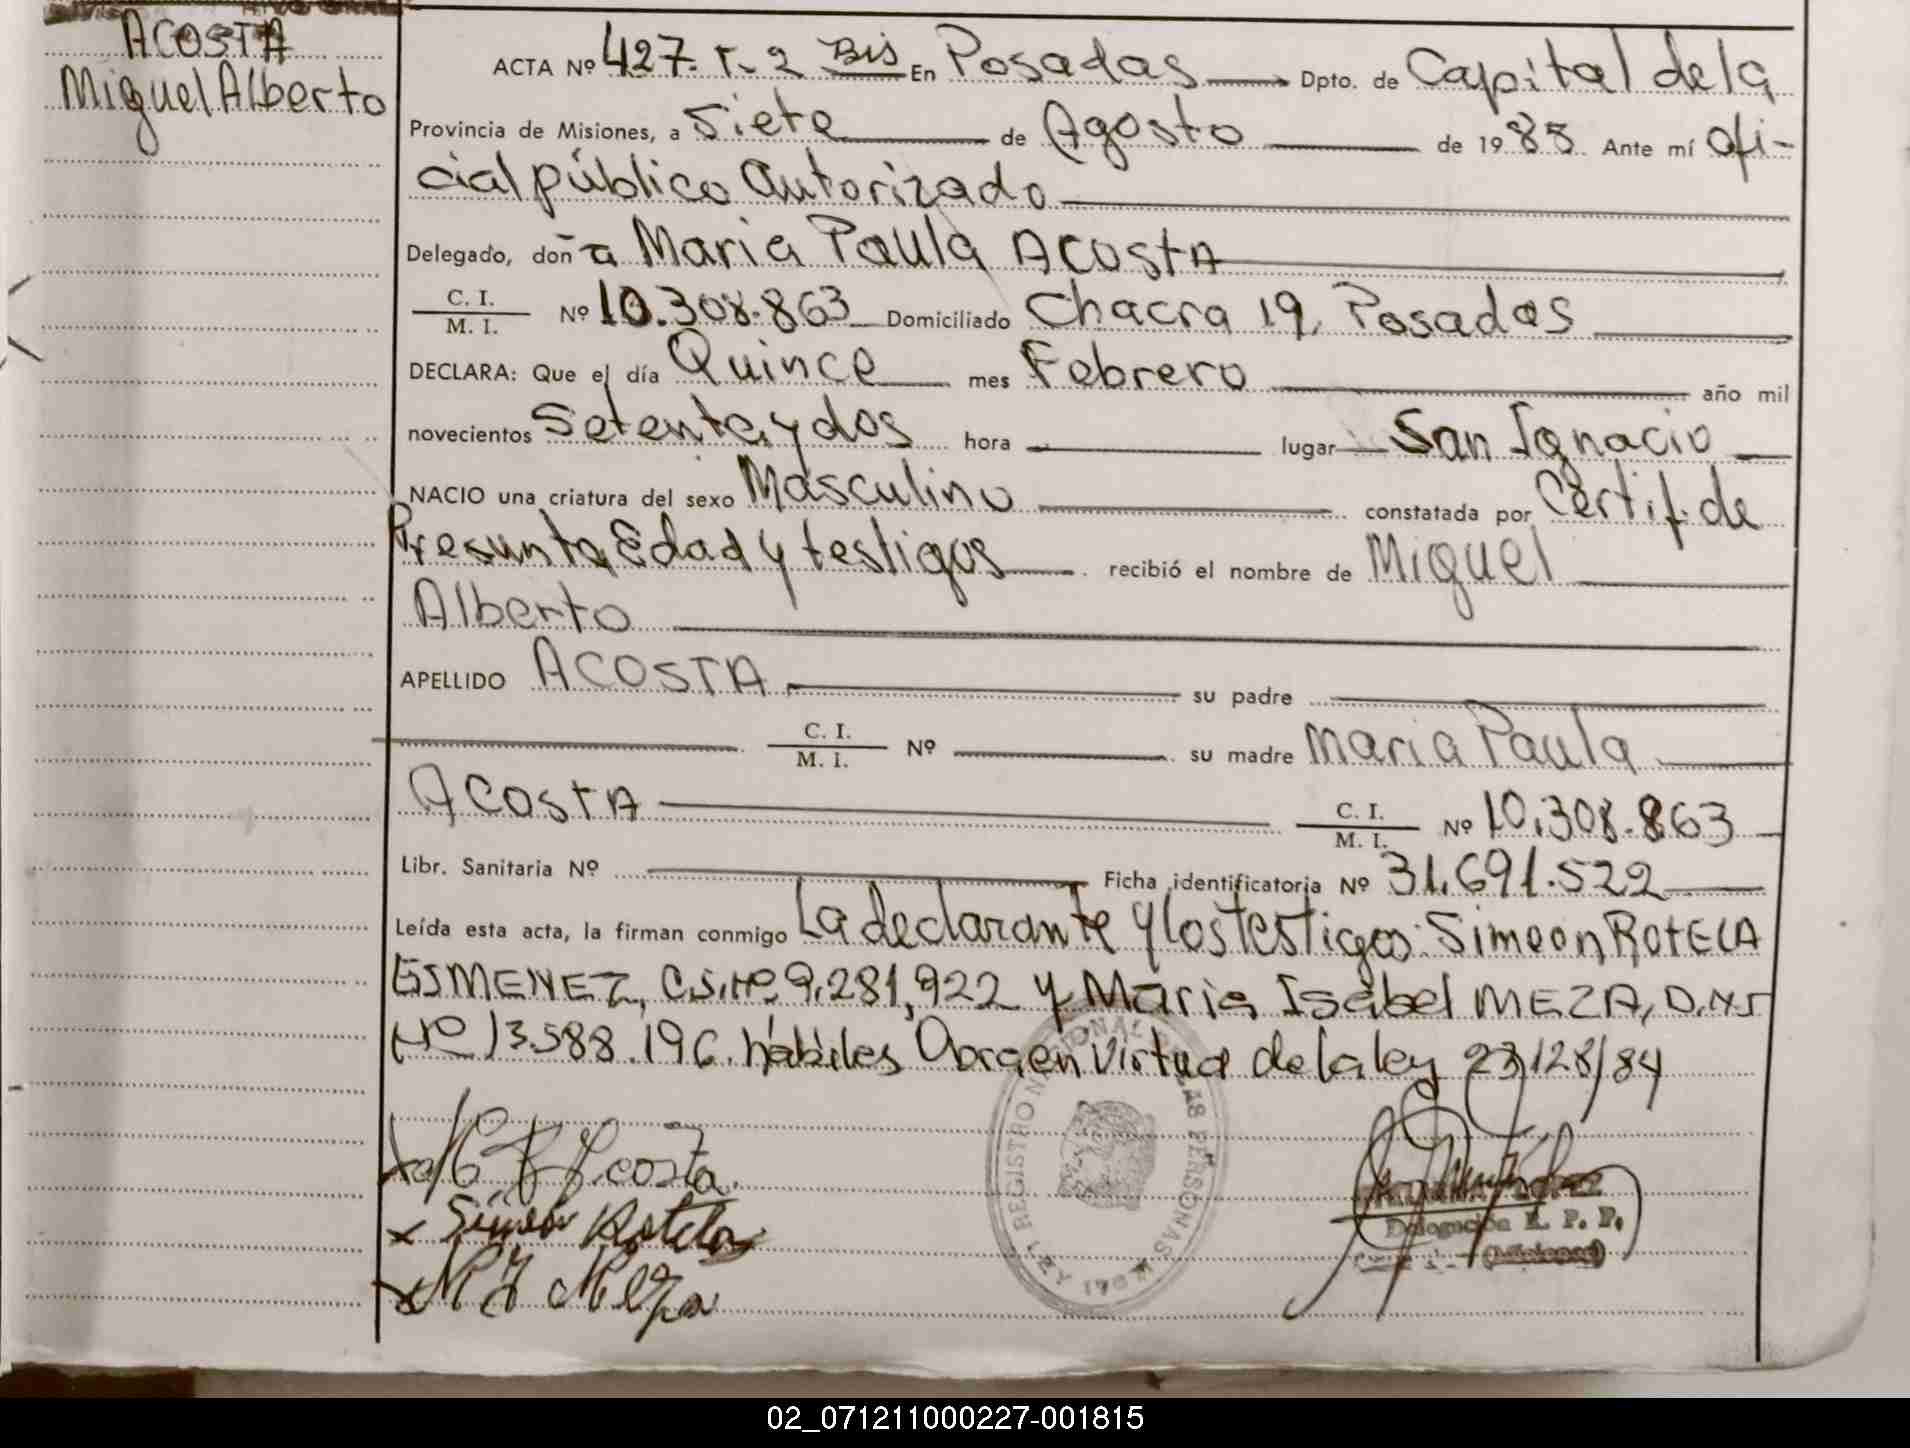 ACOSTA
Miguel Alberto
ACTA Nº 427. T. 2 Bis En Posadas Dpto. de Capital de la
Provincia de Misiones, a Siete de Agosto de 1985 Ante mí ofi-
cial público autorizado
Delegado, doña Maria Paula ACOSTA
C. I.
M. I. Nº 10.308.863 Domiciliado Chacra 19, Posadas
DECLARA: Que el día Quince mes Febrero año mil
novecientos Setenta y dos hora lugar San Ignacio
NACIO una criatura del sexo Masculino constatada por Certif. de
Presunta Edad y testigos recibió el nombre de Miguel
Alberto
APELLIDO ACOSTA su padre
C. I.
M. I. Nº su madre Maria Paula
ACOSTA C. I.
M. I. Nº 10.308.863
Libr. Sanitaria Nº Ficha identificatoria Nº 31.691.522
Leída esta acta, la firman conmigo La declarante y los testigos: Simeon ROTELA
GIMENEZ, C.I. Nº 9.281,922 y Maria Isabel MEZA, D.N.I
Nº 13.588.196. hábiles Obra en Virtud de la ley 23128/84
M P Acosta.
x Simeon Rotela
x M I Meza
REGISTRO NACIONAL DE LAS PERSONAS
LEY
Delegación R. P. P.
(Misiones)
02_071211000227-001815